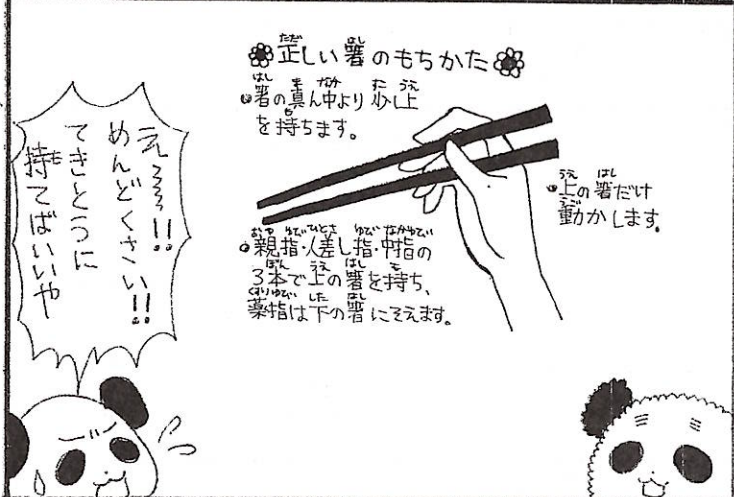 正しい箸のもちかた
箸の真ん中より少し上
を持ちます。
上の箸だけ
動かします。
親指・人差し指・中指の
3本で上の箸を持ち、
薬指は下の箸にそえます。
え〜〜〜!!
めんどくさい!!
てきとうに
持てばいいや